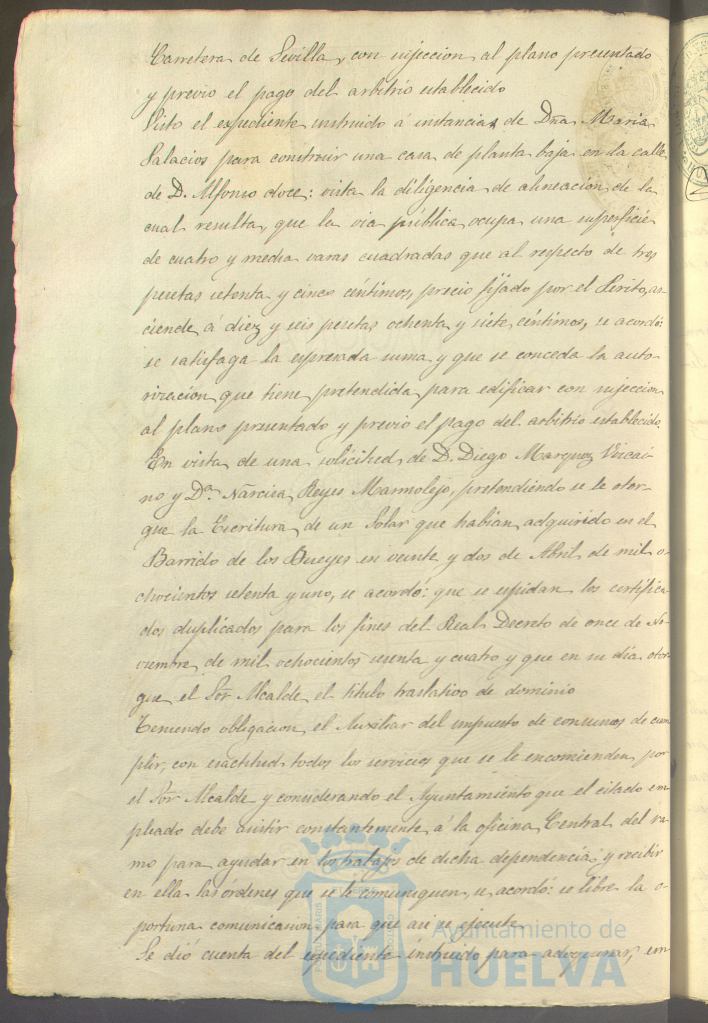 Carretera de Sevilla, con sujeccion al plano presentado
y previo el pago del arbitrio establecido
Visto el expediente instruido á instancias de Dña Maria
Palacios para construir una casa de planta baja en la calle
de D. Alfonso doce: vista la diligencia de alineacion de la
cual resulta, que la via pública ocupa una superficie
de cuatro y media varas cuadradas que al respecto de tres
pesetas setenta y cinco céntimos, precio fijado por el Perito, as-
ciende á diez y seis pesetas ochenta y siete céntimos, se acordó:
se satisfaga la espresada suma y que se conceda la auto-
rizacion que tiene pretendida para edificar con sujeccion
al plano presentado y previo el pago del arbitrio establecido.
En vista de una solicitud de D. Diego Marquez Vizcai-
no y Dª Narcisa Reyes Marmolejo, pretendiendo se le otor-
gue la Escritura de un Solar que habian adquirido en el
Barrido de los Bueyes en veinte y dos de Abril de mil o-
chocientos setenta y uno, se acordó: que se espidan los certifica-
dos duplicados para los fines del Real Decreto de once de No-
viembre de mil ochocientos sesenta y cuatro y que en su dia otor-
gue el Sor Alcalde el titulo traslativo de dominio
Teniendo obligacion el Auxiliar del impuesto de consumos de cum
plir, con esactitud todos los servicios que se le encomienden por
el Sor Alcalde y considerando el Ayuntamiento que el citado em
pleado debe asistir constantemente á la oficina Central del ra-
mo para ayudar en los trabajos de dicha dependencia y recibir
en ella las ordenes que se le comuniquen, se acordó: se libre la o-
portuna comunicacion para que asi se ejecute
Se dió cuenta del espediente instruido para adoquinar, con
Ayuntamiento de
HUELVA